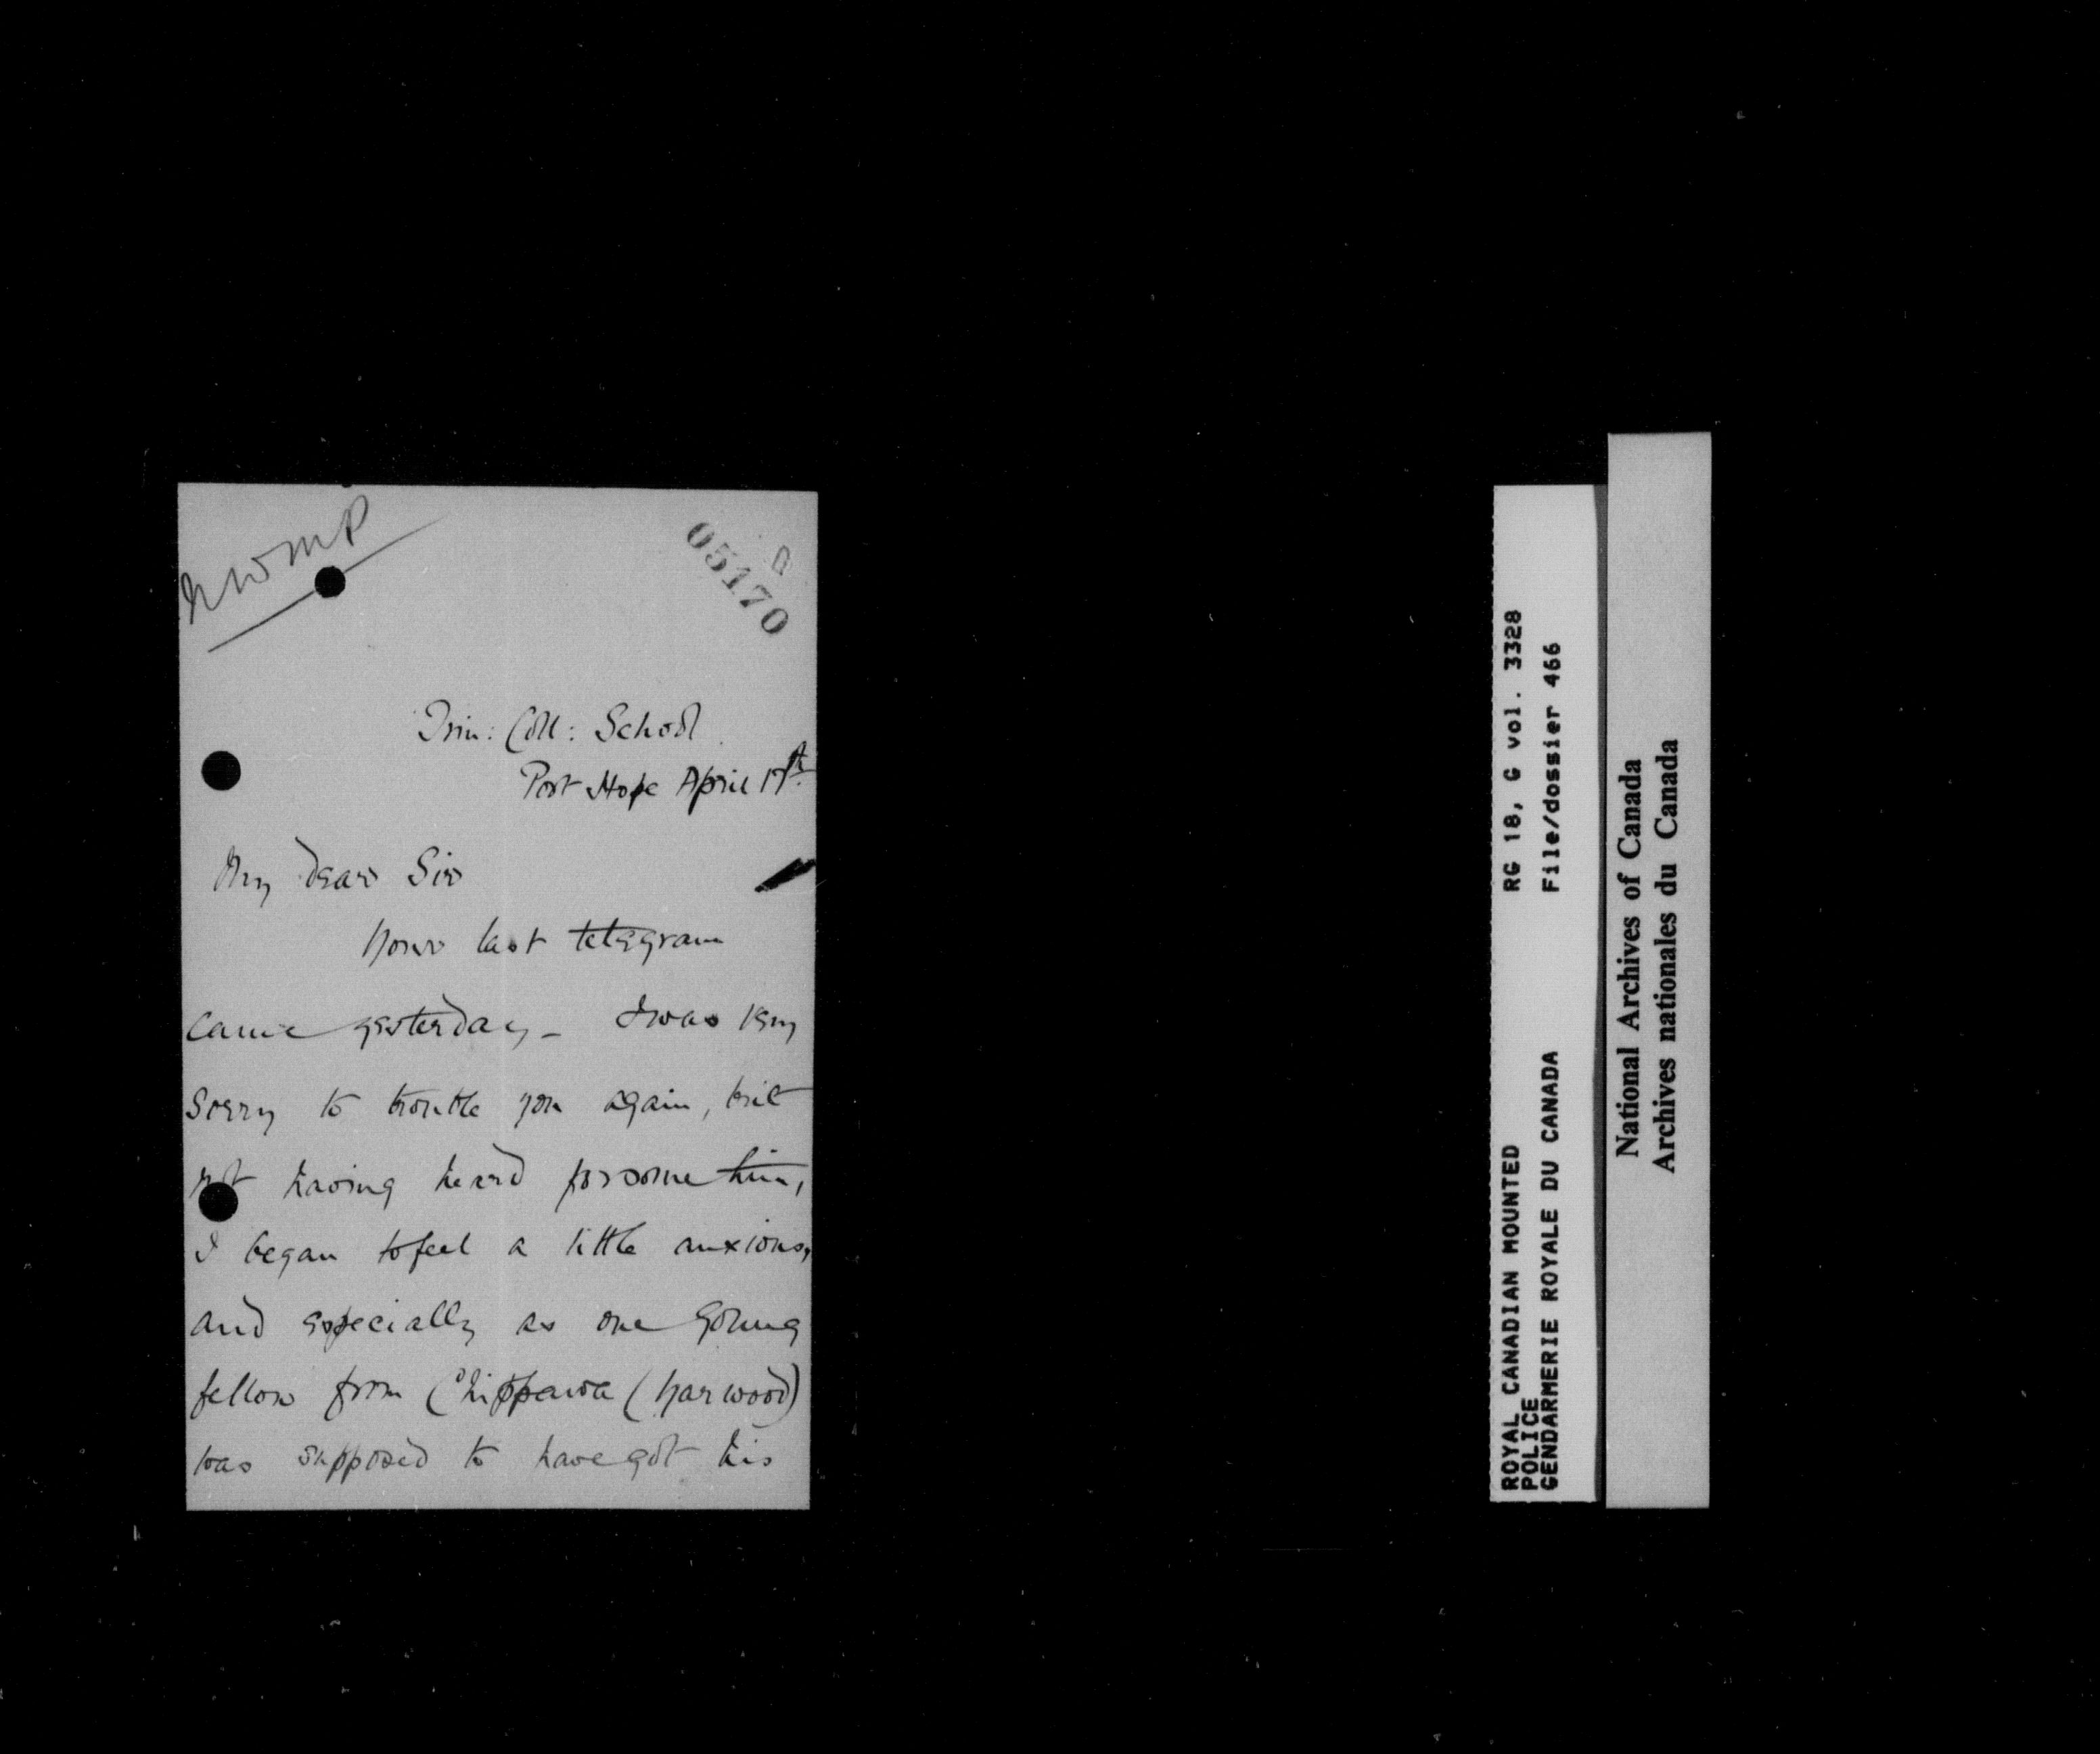 NWMP
05170
Trin: Coll: School
Port Hope April 17th
My dear Sir
Your last telegram
came yesterday - I was very
sorry to trouble you again, but
not having heard for some time,
I began to feel a little anxious,
and especially as one young
fellow from Chippawa (Harwood)
was supposed to have got his
ROYAL CANADIAN MOUNTED RG 18, G vol. 3328
POLICE
GENDARMERIE ROYALE DU CANADA File/dossier 466
National Archives of Canada
Archives nationales du Canada